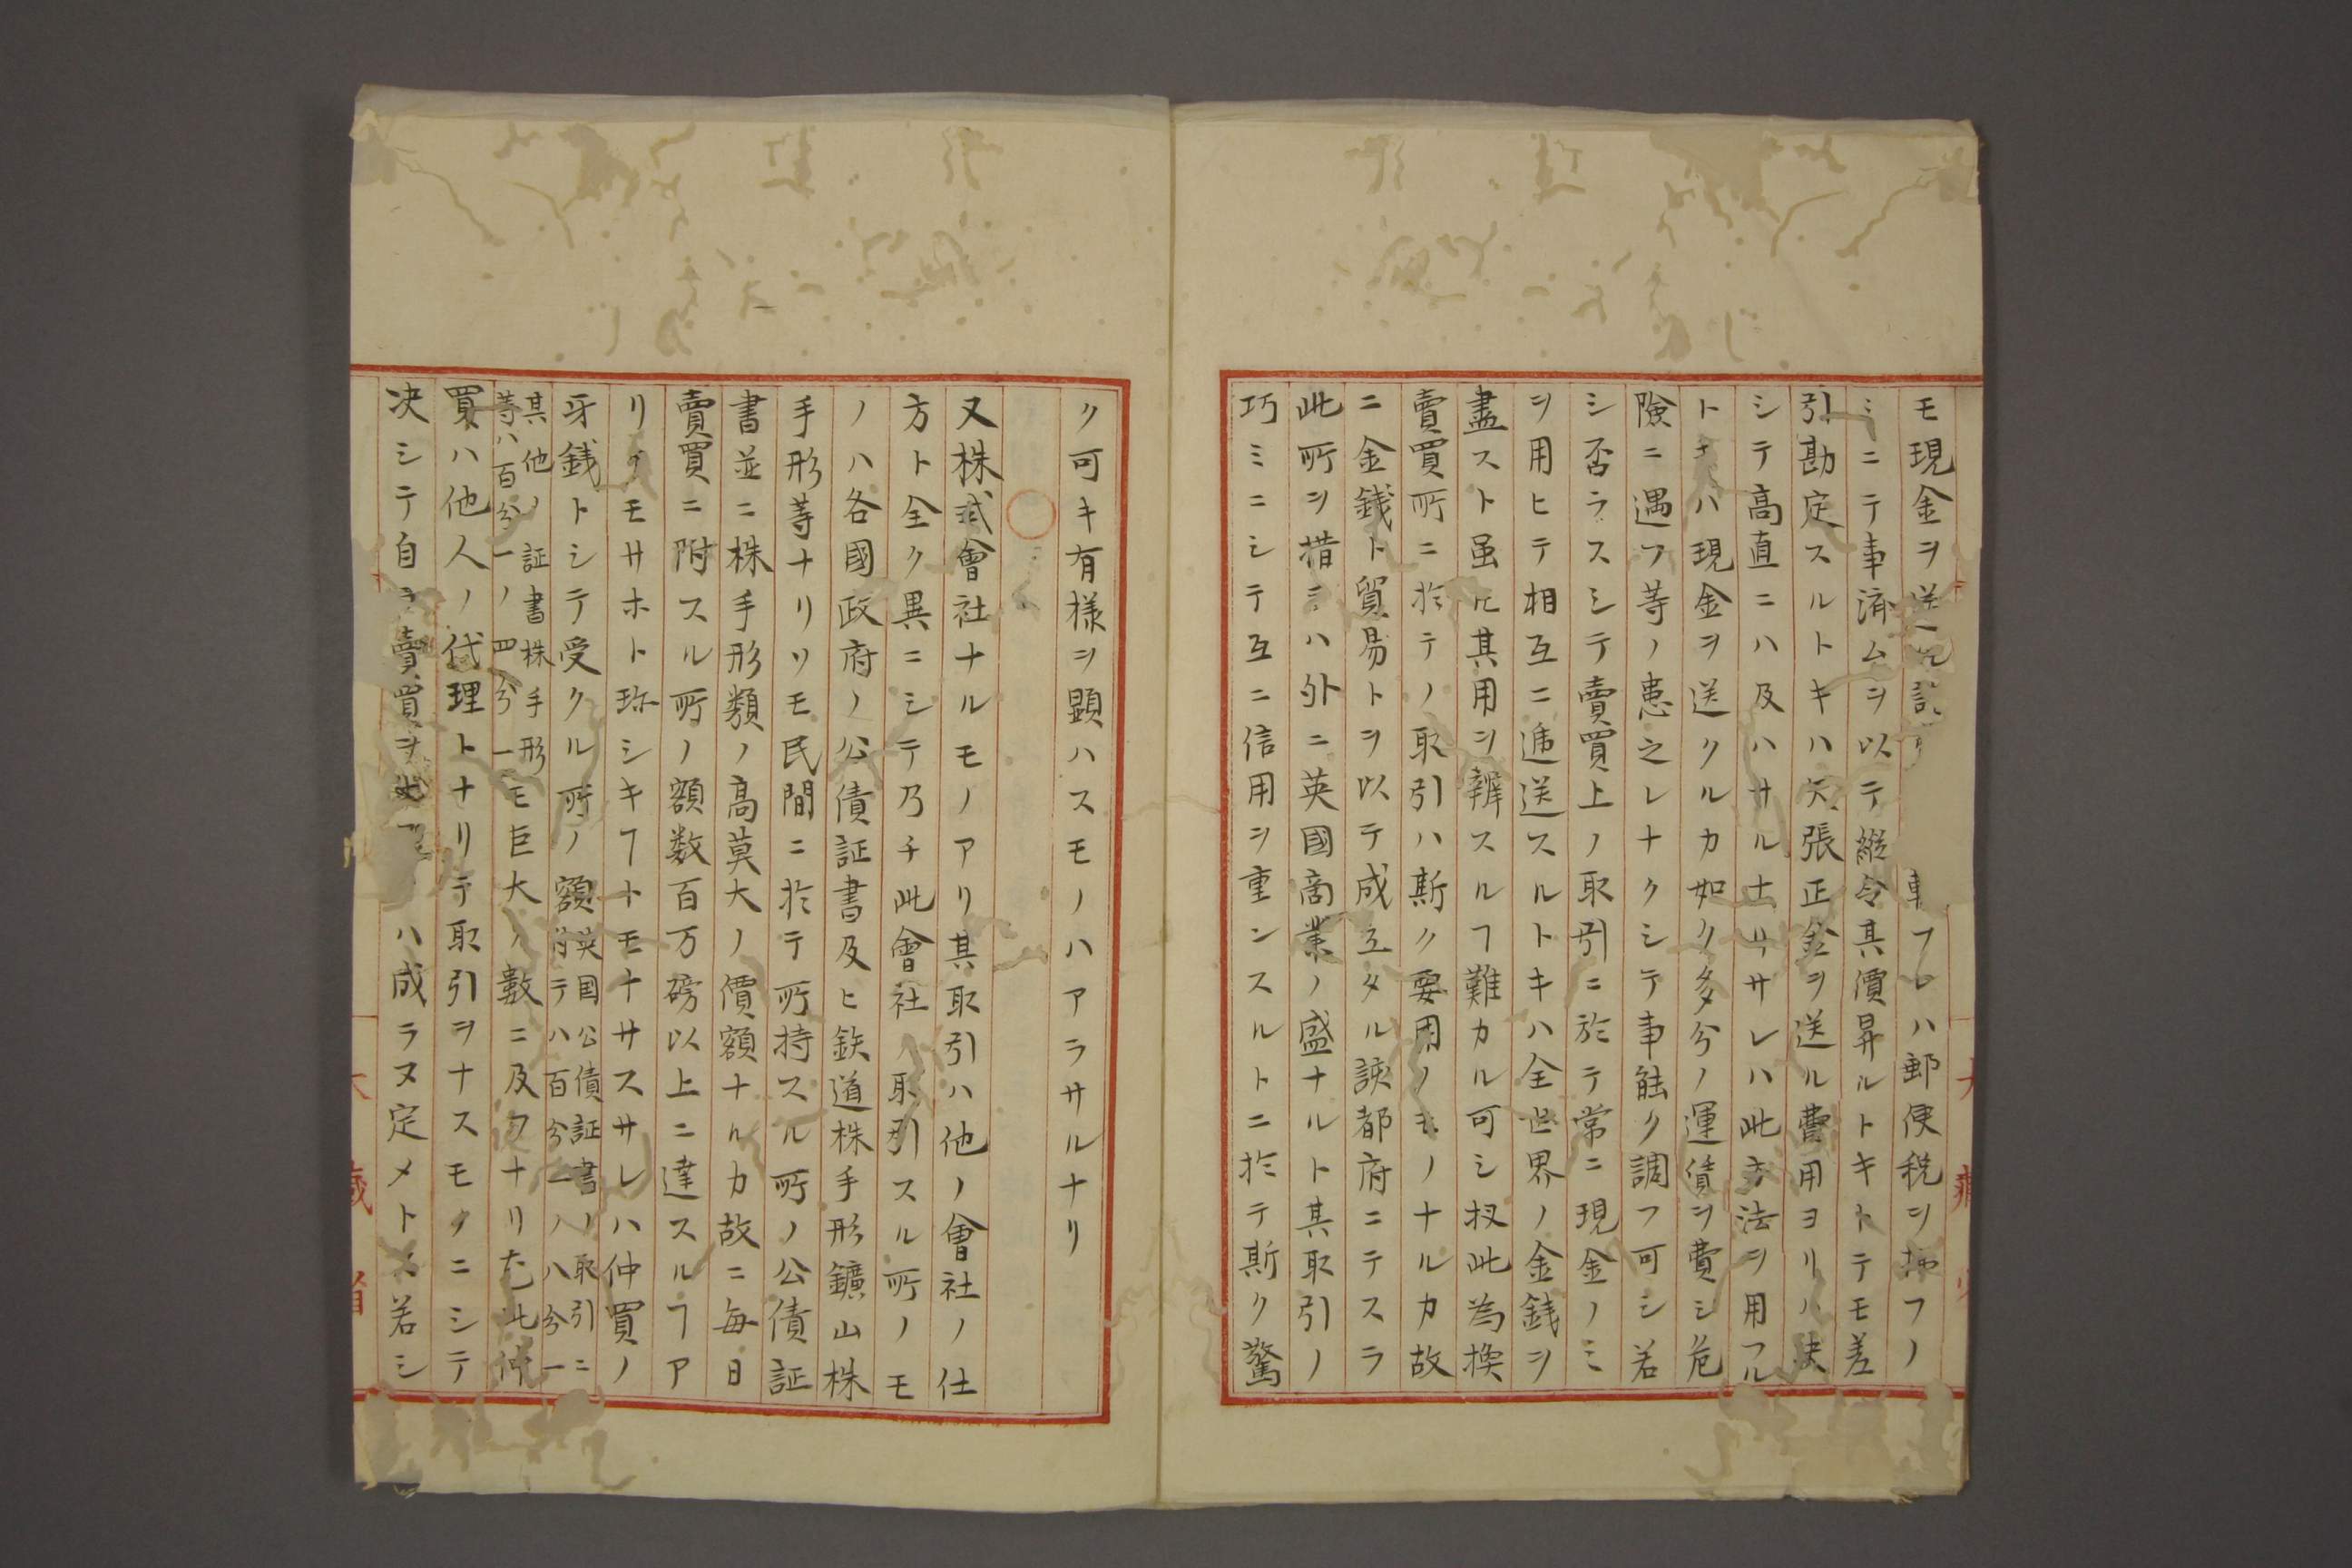 モ現金ヲ送ル フレハ郵便税ヲ拂フノ
ミニテ事済ムヲ以テ縦令其價昇ルトキトテモ差
引勘定スルトキハ矢張正金ヲ送ル費用ヨリハ決
シテ高直ニハ及ハサルナリサレハ此方法ヲ用フル
トキハ現金ヲ送クルカ如ク多分ノ運賃ヲ費シ危
険ニ遇フ等ノ患之レナクシテ事能ク調フ可シ若
シ否ラスシテ賣買上ノ取引ニ於テ常ニ現金ノミ
ヲ用ヒテ相互ニ逓送スルトキハ全世界ノ金銭ヲ
盡スト虽𪜈其用ヲ辨スルヿ難カル可シ扨此為換
賣買所ニ於テノ取引ハ斯ク要用ノモノナルカ故
ニ金銭ト貿易トヲ以テ成立タル該都府ニテスラ
此所ヲ措テハ外ニ英國商業ノ盛ナルト其取引ノ
巧ミニシテ互ニ信用ヲ重ンスルトニ於テ斯ク驚
ク可キ有様ヲ顕ハスモノハアラサルナリ
又株式會社ナルモノアリ其取引ハ他ノ會社ノ仕
方ト全ク異ニシテ乃チ此會社ノ取引スル所ノモ
ノハ各國政府ノ公債証書及ヒ鉄道株手形鑛山株
手形等ナリソモ民間ニ於テ所持スル所ノ公債証
書並ニ株手形類ノ高莫大ノ價額ナルカ故ニ毎日
賣買ニ附スル所ノ額数百万磅以上ニ達スルヿア
リテモサホト珎シキヿトモナサスサレハ仲買ノ
牙銭トシテ受クル所ノ額英国公債証書ノ取引ニ
於テハ百分一ノ八分一
其他ノ証書株手形
等ハ百分一ノ四分一モ巨大ノ數ニ及フナリ尤此仲
買ハ他人ノ代理トナリテ取引ヲナスモノニシテ
決シテ自ラ賣買ヲ ハ成ラヌ定メトス若シ
大藏省